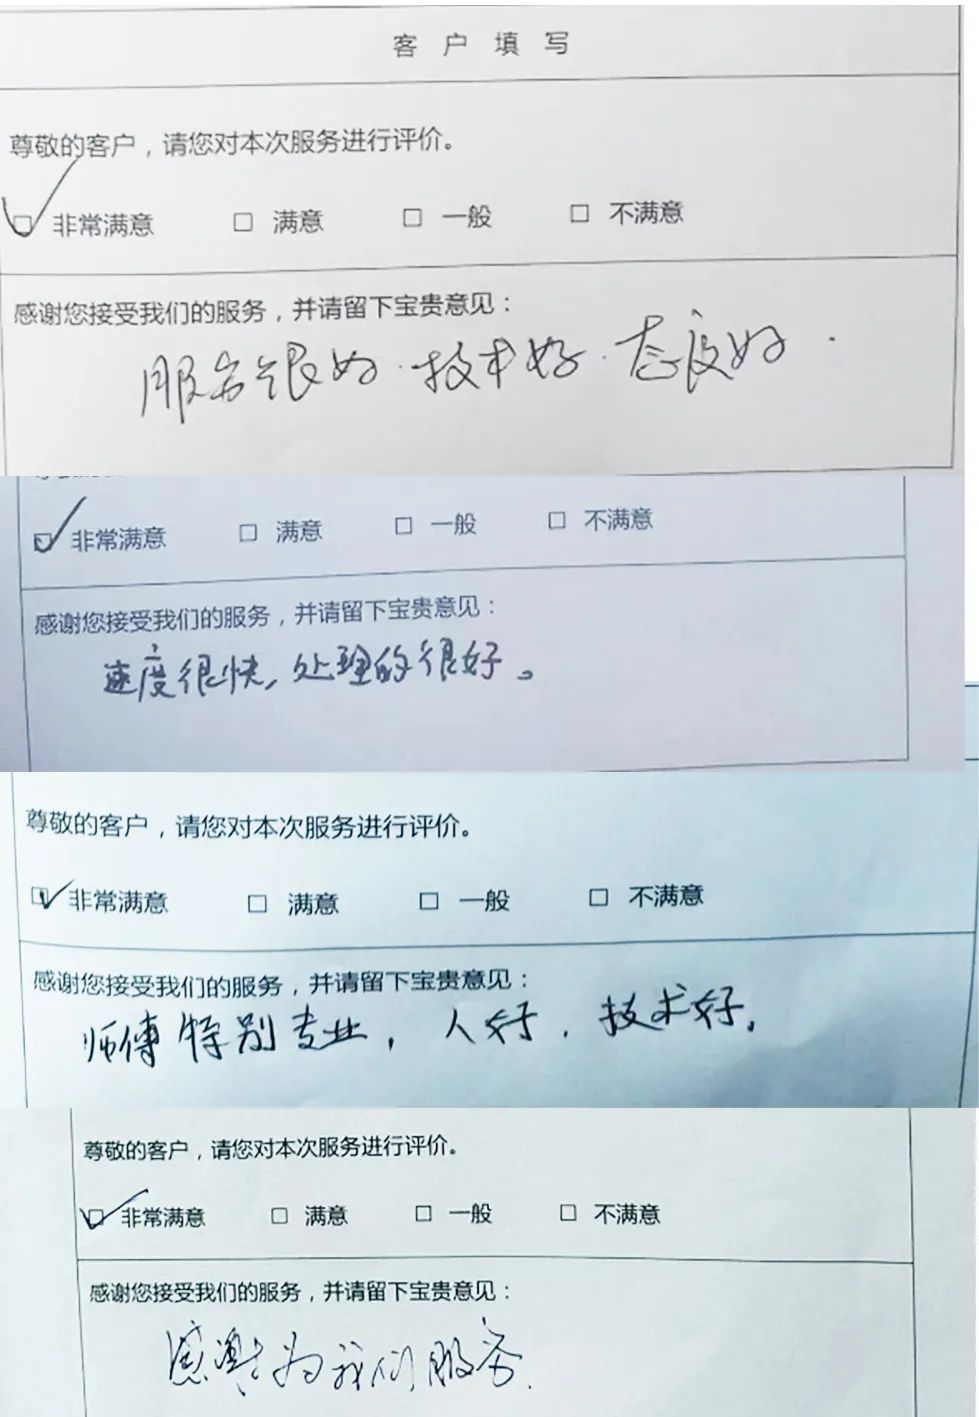 客 户 填 写
尊敬的客户，请您对本次服务进行评价。
☑ 非常满意 □ 满意 □ 一般 □ 不满意
感谢您接受我们的服务，并请留下宝贵意见：
服务很好．技术好．态度好．
☑ 非常满意 □ 满意 □ 一般 □ 不满意
感谢您接受我们的服务，并请留下宝贵意见：
速度很快，处理的很好。
尊敬的客户，请您对本次服务进行评价。
☑ 非常满意 □ 满意 □ 一般 □ 不满意
感谢您接受我们的服务，并请留下宝贵意见：
师傅特别专业，人好，技术好。
尊敬的客户，请您对本次服务进行评价。
☑ 非常满意 □ 满意 □ 一般 □ 不满意
感谢您接受我们的服务，并请留下宝贵意见：
感谢为我们服务．